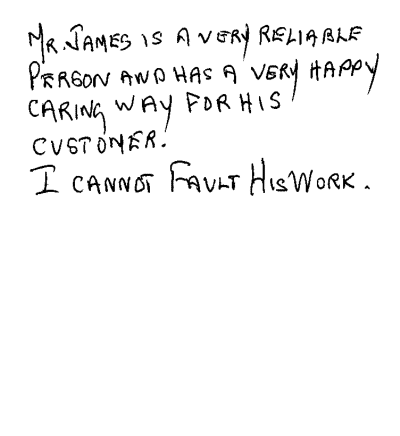 MR. JAMES IS A VERY RELIABLE
PERSON AND HAS A VERY HAPPY
CARING WAY FOR HIS
CUSTOMER.
I CANNOT FAULT HIS WORK.